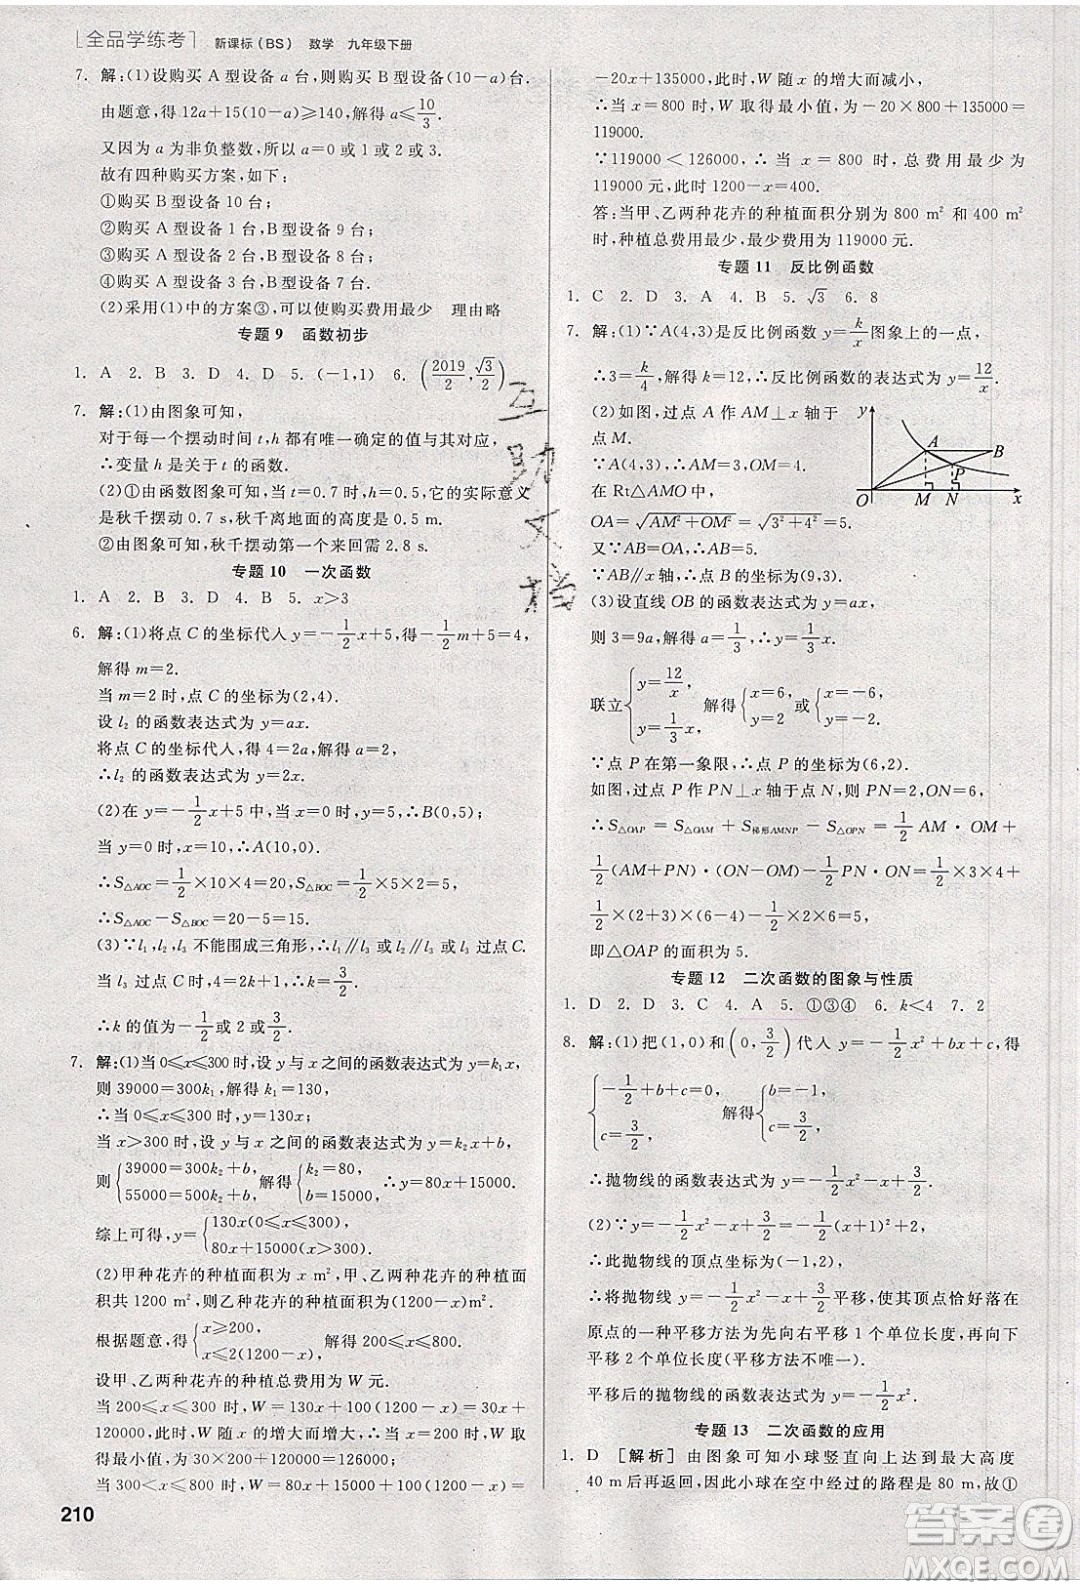 全品学练考 新课标(BS) 数学 九年级下册
7. 解:(1)设购买 A 型设备 a 台,则购买 B 型设备(10-a)台.
由题意,得 12a+15(10-a)≥140,解得 a≤10/3.
又因为 a 为非负整数,所以 a=0 或 1 或 2 或 3.
故有四种购买方案,如下:
①购买 B 型设备 10 台;
②购买 A 型设备 1 台,B 型设备 9 台;
③购买 A 型设备 2 台,B 型设备 8 台;
④购买 A 型设备 3 台,B 型设备 7 台.
(2)采用(1)中的方案③,可以使购买费用最少 理由略
专题 9 函数初步
1. A 2. B 3. D 4. D 5. (-1,1) 6. (2019/2,√3/2)
7. 解:(1)由图象可知,
对于每一个摆动时间 t,h 都有唯一确定的值与其对应,
∴变量 h 是关于 t 的函数.
(2)①由函数图象可知,当 t=0.7 时,h=0.5,它的实际意义
是秋千摆动 0.7 s,秋千离地面的高度是 0.5 m.
②由图象可知,秋千摆动第一个来回需 2.8 s.
专题 10 一次函数
1. A 2. B 3. D 4. B 5. x>3
6. 解:(1)将点 C 的坐标代人 y=-1/2x+5,得-1/2m+5=4,
解得 m=2.
当 m=2 时,点 C 的坐标为(2,4).
设 l₂ 的函数表达式为 y=ax.
将点 C 的坐标代人,得 4=2a,解得 a=2,
∴l₂ 的函数表达式为 y=2x.
(2)在 y=-1/2x+5 中,当 x=0 时,y=5,∴B(0,5);
当 y=0 时,x=10,∴A(10,0).
∴S△AOC=1/2×10×4=20,S△BOC=1/2×5×2=5,
∴S△AOC-S△BOC=20-5=15.
(3)∵l₁,l₂,l₃ 不能围成三角形,∴l₁∥l₃ 或 l₂∥l₃ 或 l₃ 过点 C.
当 l₃ 过点 C 时,4=2k+1,∴k=3/2,
∴k 的值为-1/2或 2 或3/2.
7. 解:(1)当 0≤x≤300 时,设 y 与 x 之间的函数表达式为 y=k₁x,
则 39000=300k₁,解得 k₁=130;
∴当 0≤x≤300 时,y=130x;
当 x>300 时,设 y 与 x 之间的函数表达式为 y=k₂x+b,
则{39000=300k₂+b, 55000=500k₂+b,解得{k₂=80, b=15000,即 y=80x+15000.
综上可得,y={130x(0≤x≤300), 80x+15000(x>300).
(2)甲种花卉的种植面积为 x m²,甲、乙两种花卉的种植面
积共 1200 m²,则乙种花卉的种植面积为(1200-x)m².
根据题意,得{x≥200, x≤2(1200-x),解得 200≤x≤800.
设甲、乙两种花卉的种植总费用为 W 元.
当 200≤x≤300 时,W=130x+100(1200-x)=30x+
120000,此时,W 随 x 的增大而增大,∴当 x=200 时,W 取
得最小值,为 30×200+120000=126000;
当 300<x≤800 时,W=80x+15000+100(1200-x)=
210
-20x+135000,此时,W 随 x 的增大而减小,
∴当 x=800 时,W 取得最小值,为-20×800+135000=
119000.
∵119000<126000,∴当 x=800 时,总费用最少,为
119000 元,此时 1200-x=400.
答:当甲、乙两种花卉的种植面积分别为 800 m² 和 400 m²
时,种植总费用最少,最少为 119000 元.
专题 11 反比例函数
1. C 2. D 3. A 4. B 5. √3 6. 8
7. 解:(1)∵A(4,3)是反比例函数 y=k/x图象上的一点,
∴3=k/4,解得 k=12,∴反比例函数的表达式为 y=12/x.
(2)如图,过点 A 作 AM⊥x 轴于
点 M.
∵A(4,3),∴AM=3,OM=4.
在 Rt△AMO 中,
OA=√AM²+OM²=√3²+4²=5.
又∵AB=OA,∴AB=5.
∵AB∥x 轴,∴点 B 的坐标为(9,3).
y A B P O M N x
(3)设直线 OB 的函数表达式为 y=ax,
则 3=9a,解得 a=1/3,∴y=1/3x.
联立{y=12/x, y=1/3x,解得{x=6, y=2或{x=-6, y=-2.
∵点 P 在第一象限,∴点 P 的坐标为(6,2).
如图,过点 P 作 PN⊥x 轴于点 N,则 PN=2,ON=6,
∴S△OAP=S△OAM+S梯形AMNP-S△OPN=1/2AM·OM+
1/2(AM+PN)·(ON-OM)-1/2ON·PN=1/2×3×4+
1/2×(3+2)×(6-4)-1/2×6×2=5,
即△OAP 的面积为 5.
专题 12 二次函数的图象与性质
1. D 2. D 3. C 4. A 5. ①③④ 6. k<4 7. 2
8. 解:(1)把(1,0)和(0,3/2)代人 y=-1/2x²+bx+c,得
{-1/2+b+c=0, c=3/2,解得{b=-1, c=3/2,
∴抛物线的函数表达式为 y=-1/2x²-x+3/2.
(2)∵y=-1/2x²-x+3/2=-1/2(x+1)²+2,
∴此抛物线的顶点坐标为(-1,2),
∴将抛物线 y=-1/2x²-x+3/2平移,使其顶点恰好落在
原点的一种平移方法为先向右平移 1 个单位长度,再向下
平移 2 个单位长度(平移方法不唯一).
平移后的抛物线的函数表达式为 y=-1/2x².
专题 13 二次函数的应用
1. D [解析] 由图象可知小球竖直向上达到最大高度
40 m后再返回,因此小球在空中经过的路程是 80 m,故①
互助文档
答案圈
MXQE.COM